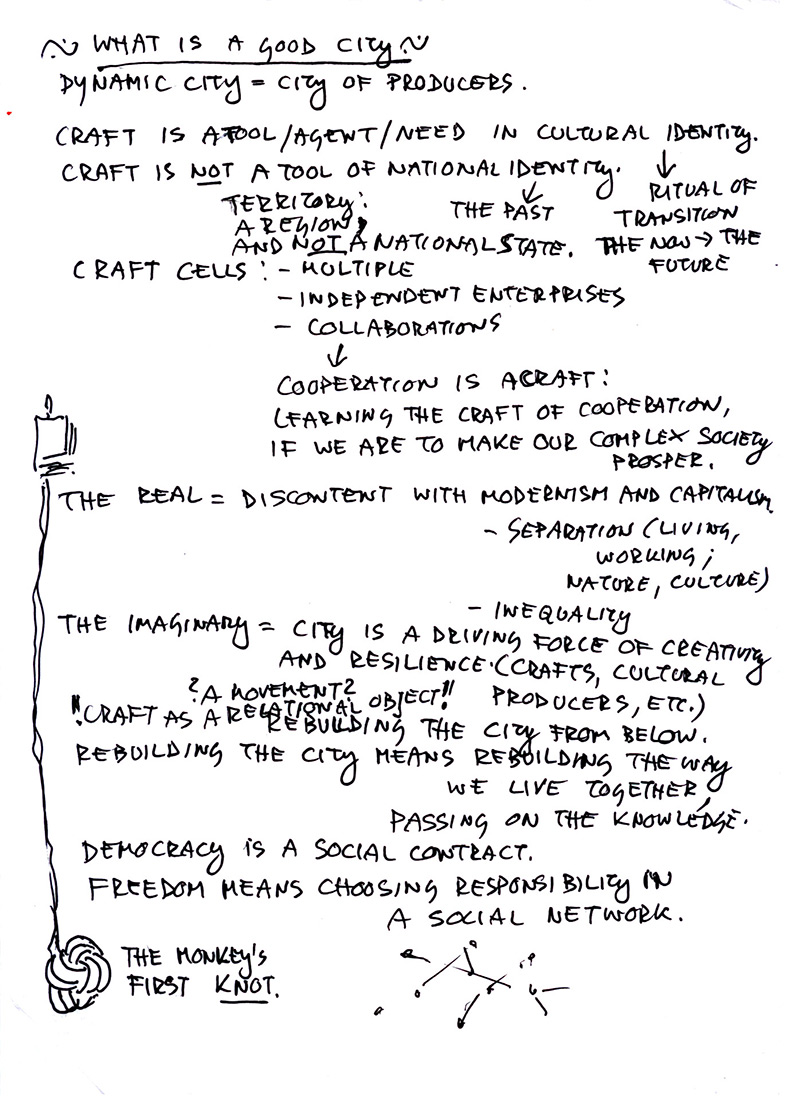 ~ WHAT IS A GOOD CITY ~
DYNAMIC CITY = CITY OF PRODUCERS.
CRAFT IS A TOOL/AGENT/NEED IN CULTURAL IDENTITY.
CRAFT IS NOT A TOOL OF NATIONAL IDENTITY.
↓
RITUAL OF
TRANSITION
THE NOW → THE
FUTURE
↓
THE PAST
TERRITORY:
A REGION,
AND NOT A NATIONAL STATE.
CRAFT CELLS: - MULTIPLE
- INDEPENDENT ENTERPRISES
- COLLABORATIONS
↓
COOPERATION IS A CRAFT:
LEARNING THE CRAFT OF COOPERATION,
IF WE ARE TO MAKE OUR COMPLEX SOCIETY
PROSPER.
THE REAL = DISCONTENT WITH MODERNISM AND CAPITALISM
- SEPARATION (LIVING,
WORKING;
NATURE, CULTURE)
- INEQUALITY
THE IMAGINARY = CITY IS A DRIVING FORCE OF CREATIVITY
AND RESILIENCE. (CRAFTS, CULTURAL
PRODUCERS, ETC.)
? A MOVEMENT?
"! CRAFT AS A RELATIONAL OBJECT!!
REBUILDING THE CITY FROM BELOW.
REBUILDING THE CITY MEANS REBUILDING THE WAY
WE LIVE TOGETHER,
PASSING ON THE KNOWLEDGE.
DEMOCRACY IS A SOCIAL CONTRACT.
FREEDOM MEANS CHOOSING RESPONSIBILITY IN
A SOCIAL NETWORK.
THE MONKEY'S
FIRST KNOT.